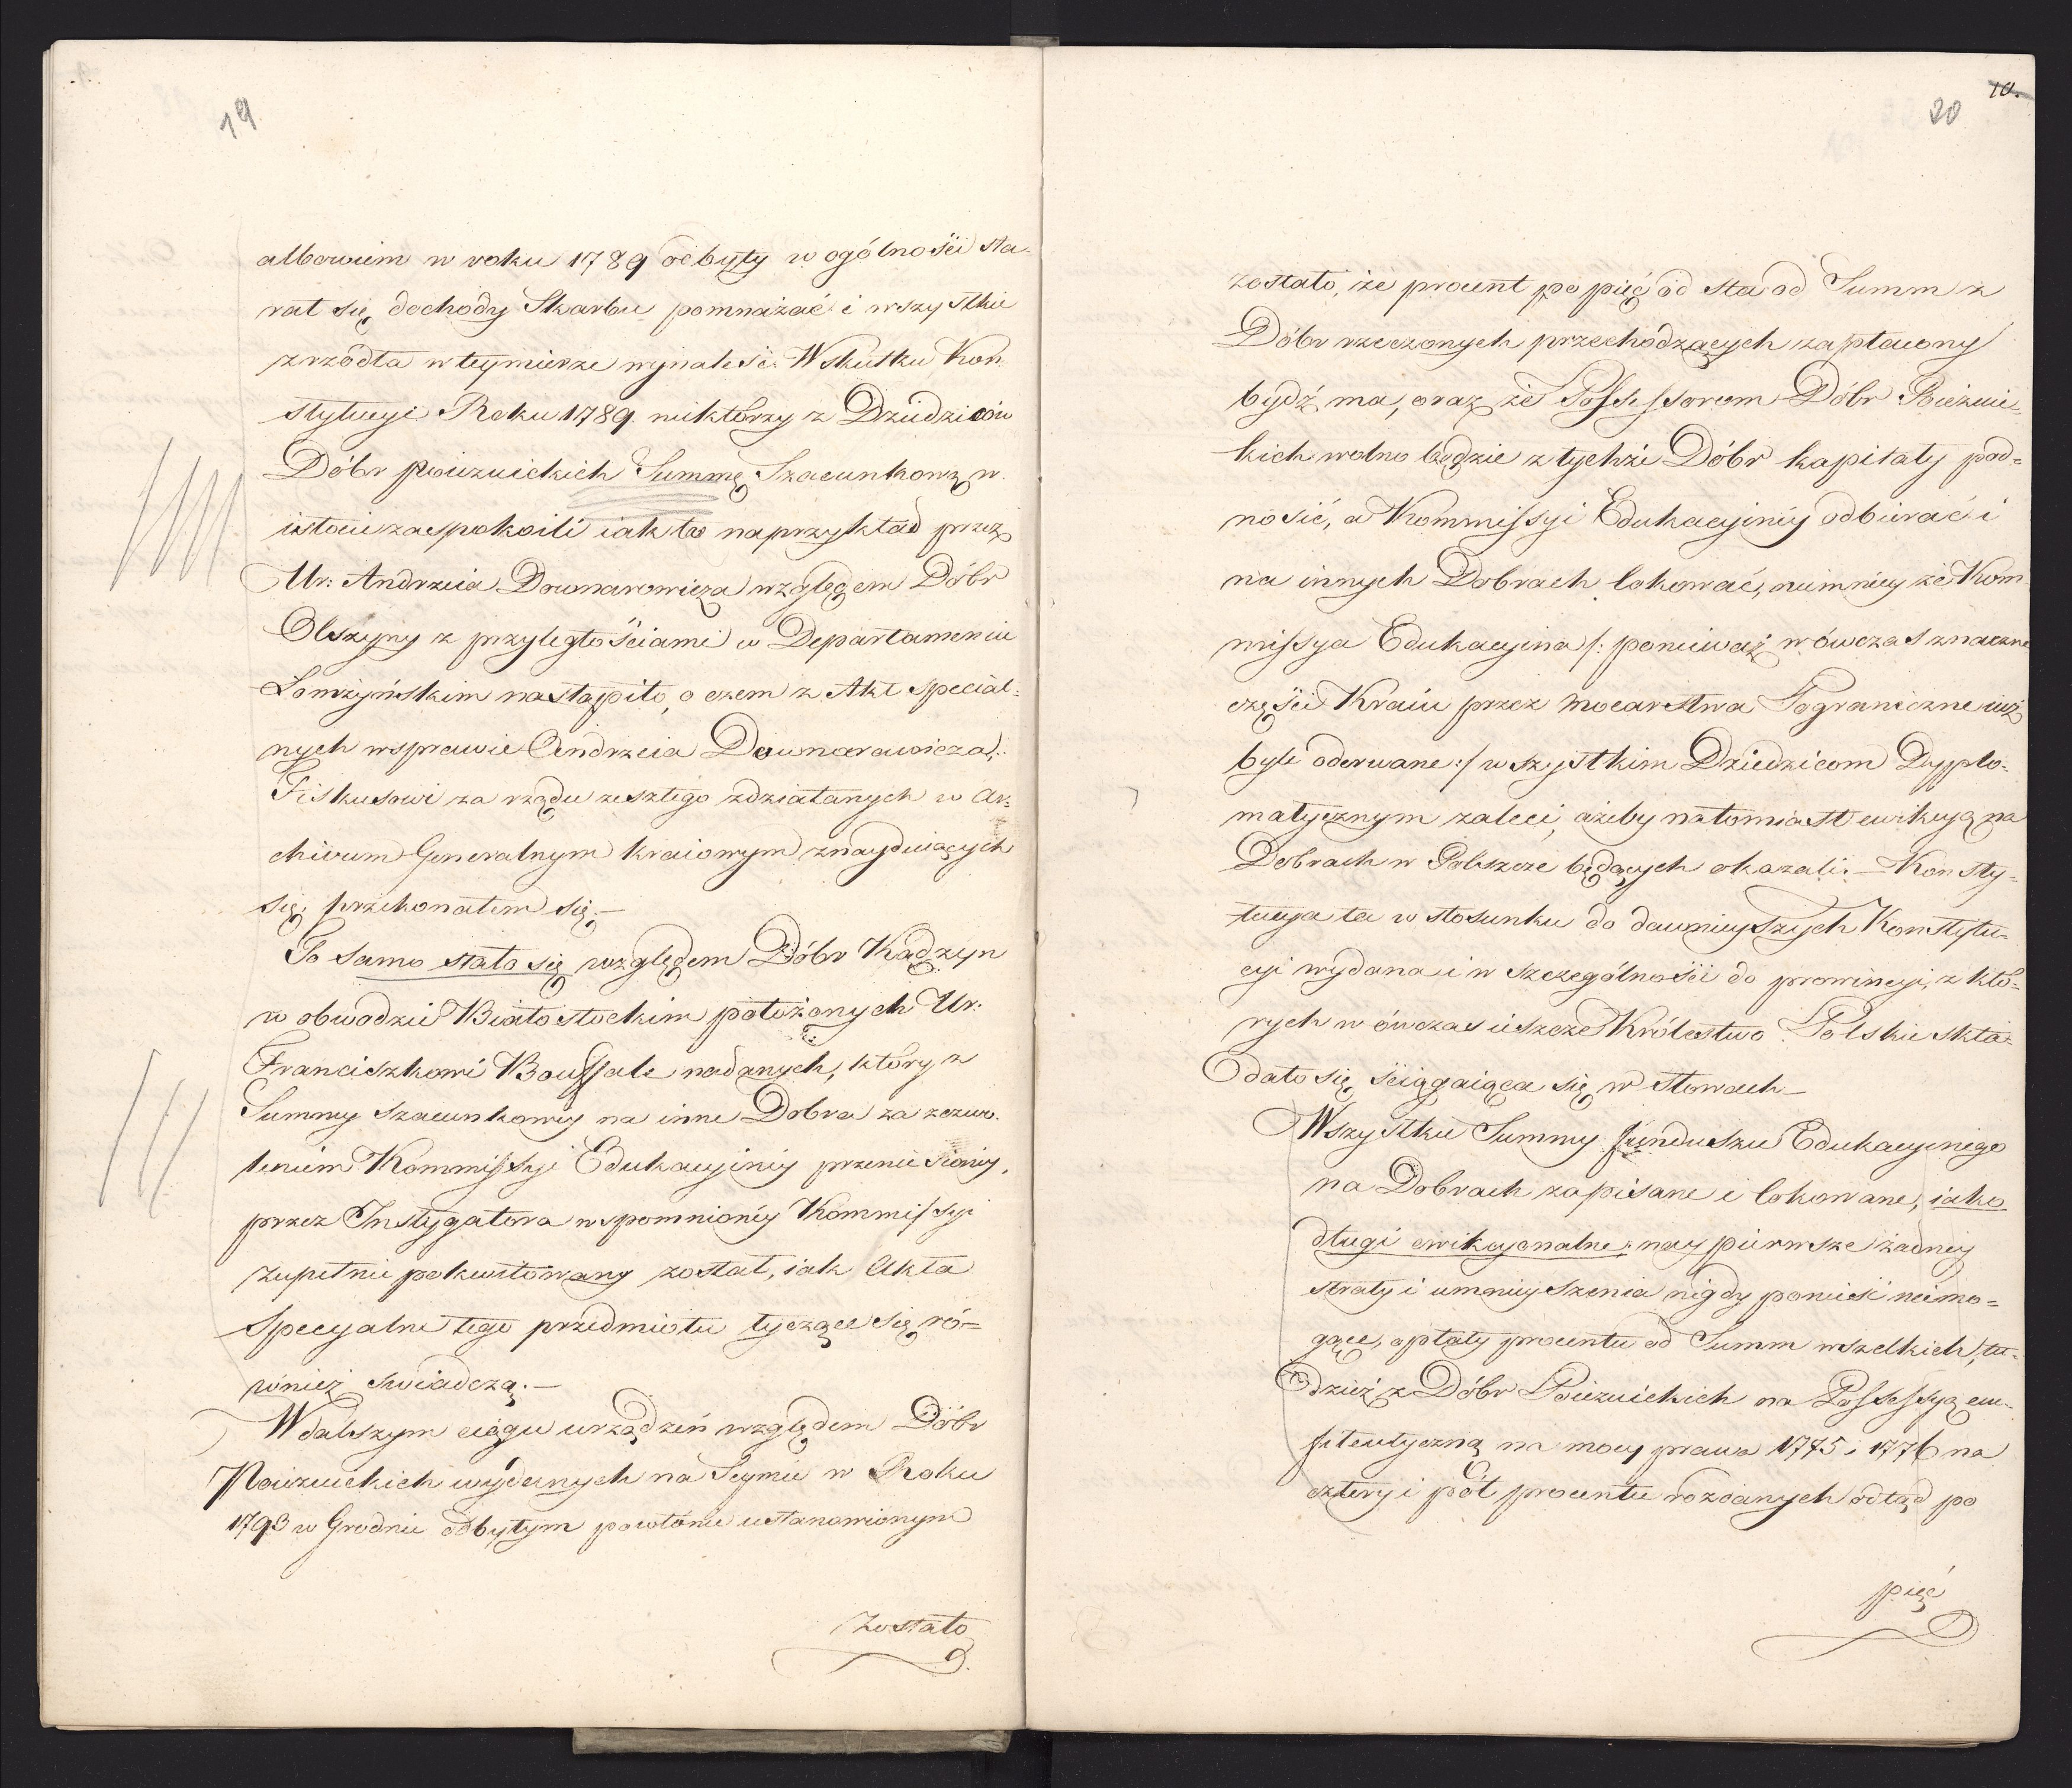 19
albowiem w roku 1789 odbyty w ogólności sta-
rał się dochody Skarbu pomnażać i wszystkie
zrzódła w teymierze wynaleść. W skutku Kon-
stytucyi Roku 1789. niektórzy z Dziedziców
Dóbr Poiezuickich Summę Szacunkową w
istocie zaspokoili iak to naprzykład przez
Ur: Andrzeia Downarowicza względem Dóbr
Olszyny z przyległościami w Departamencie
Łomżyńskim nastąpiło, o czem z Akt special-
nych w sprawie Andrzeia Downarowicza /.
Fiskusowi za rządu zeszłego zdziałanych w Ar-
chivum Generalnym kraiowym znayduiących
się, przekonałem się. —
To samo stało się względem Dóbr Kądzyn
w obwodzie Białostockim położonych Ur:
Franciszkowi Bouffale nadanych, który z
Summy szacunkowey na inne Dobra za zezwo-
leniem Kommissyi Edukacyiney przeniesioney,
przez Instygatora wspomnioney Kommissyi
zupełnie pokwitowany został, iak Akta
specyalne tego przedmiotu tyczące się ró-
wnież świadczą. —
W dalszym ciągu urządzeń względem Dóbr
Poiezuickich wydanych na Seymie w Roku
1793 w Grodnie odbytym powtórnie ustanowionym
zostało
10.
20
zostało, że procent po pięć od sta od Summ z
Dóbr rzeczonych przechodzących zapłacony
bydź ma, oraz że Possessorom Dóbr Poiezuic-
kich wolno będzie z tychże Dóbr kapitały pod-
nosić, a Kommissyi Edukacyiney odbierać i
na innych Dobrach lokować, niemniey że Kom-
missya Edukacyina /: ponieważ wówczas znaczne
części Kraiu przez Mocarstwa Pograniczne iuż
były oderwane :/ wszystkim Dziedzicom Dyplo-
matycznym zaleci, ażeby natomiast ewikcyą na
Dobrach w Polszcze będących okazali. — Konsty-
tucya ta w stosunku do dawnieyszych Konstytu-
cyi wydana i w szczególności do prowincyi, z któ-
rych wówczas ieszcze Królestwo Polskie skła-
dało się ściągaiąca się w słowach —
Wszystkie Summy funduszu Edukacyinego
na Dobrach zapisane i lokowane, iako
długi ewikcyonalne, naypierwsze żadney
straty i umnieyszenia nigdy ponieść niemo-
gące, a płaty procentu od Summ wszelkich, tu-
dzież z Dóbr Poiezuickich na Possessyą em-
fiteutyczną na mocy prawa 1775 i 1776 na
cztery i pół procentu rozdanych odtąd po
pięć